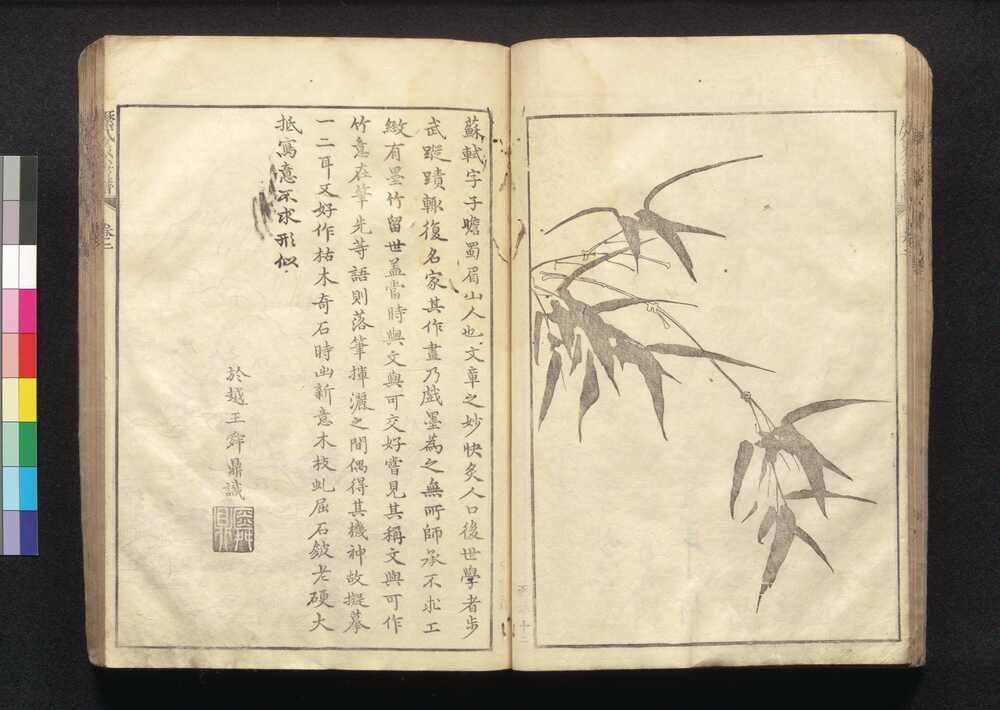 蘇軾字子瞻蜀眉山人也文章之妙快炙人口後世學者步
武蹤蹟輙復名家其作畫乃戲墨為之無所師承不求工
緻有墨竹留世盖當時與文與可交好嘗見其稱文與可作
竹意在筆先等語則落筆揮灑之間偶得其機神故擬摹
一二耳又好作枯木奇石時出新意木枝虬屈石皴老硬大
抵寫意不求形似
於越王舜鼎識
卷二